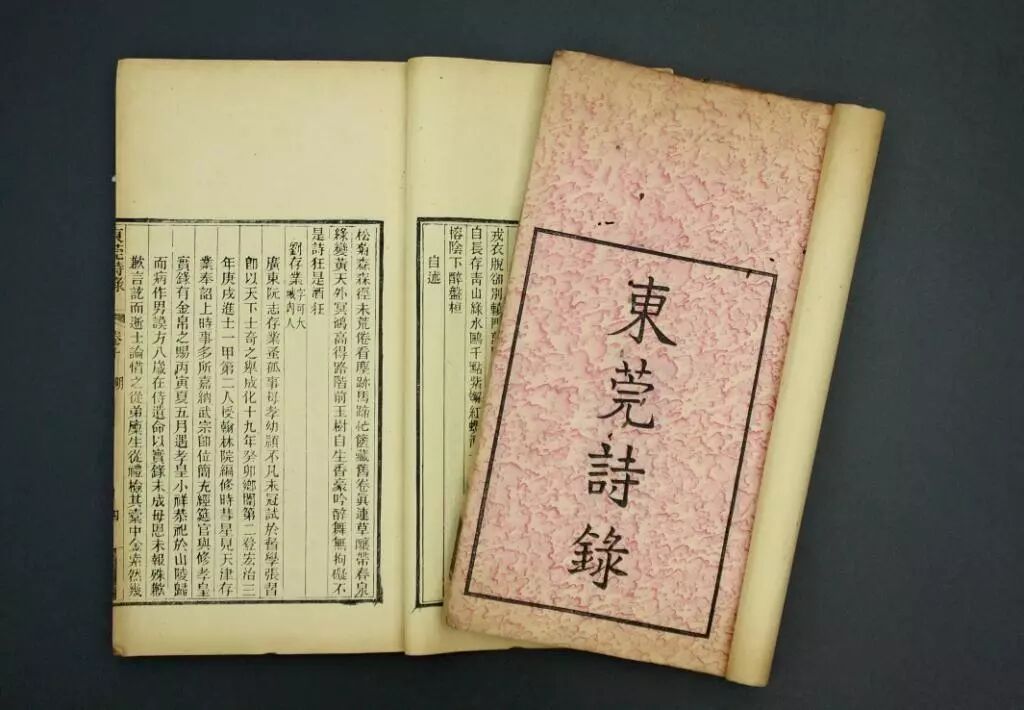 東莞詩錄
戎衣脫卻別轅門
自長存青山綠水鷗千點紫蟹紅螺酒
榕陰下醉盤桓
自
松菊森森徑未荒倦看塵跡馬蹄忙篋藏舊卷眞連草釀帶春泉
綠變黃天外冥鴻高得路階前玉樹自生香豪吟醉舞無拘礙不
是詩狂是酒狂
劉存業 字可大 城內人
廣東阮志存業蚤孤事母孝幼頴不凡未冠試於舊學張習
卽以天下士奇之舉成化十九年癸卯鄉闈第二登宏治三
年庚戌進士一甲第二人授翰林院編修時彗星見天津存
業奉詔上時事多所嘉納武宗卽位簡充經筵官與修孝皇
實錄有金帛之賜丙寅夏五月遇孝皇小祥恭祀於山陵歸
而病作男謨方八歲在侍遺命以實錄未成母恩未報殊歉
歉言訖而逝士論惜之從弟廩生從禮檢其橐中金索然幾
東莞詩錄 卷十 明 四